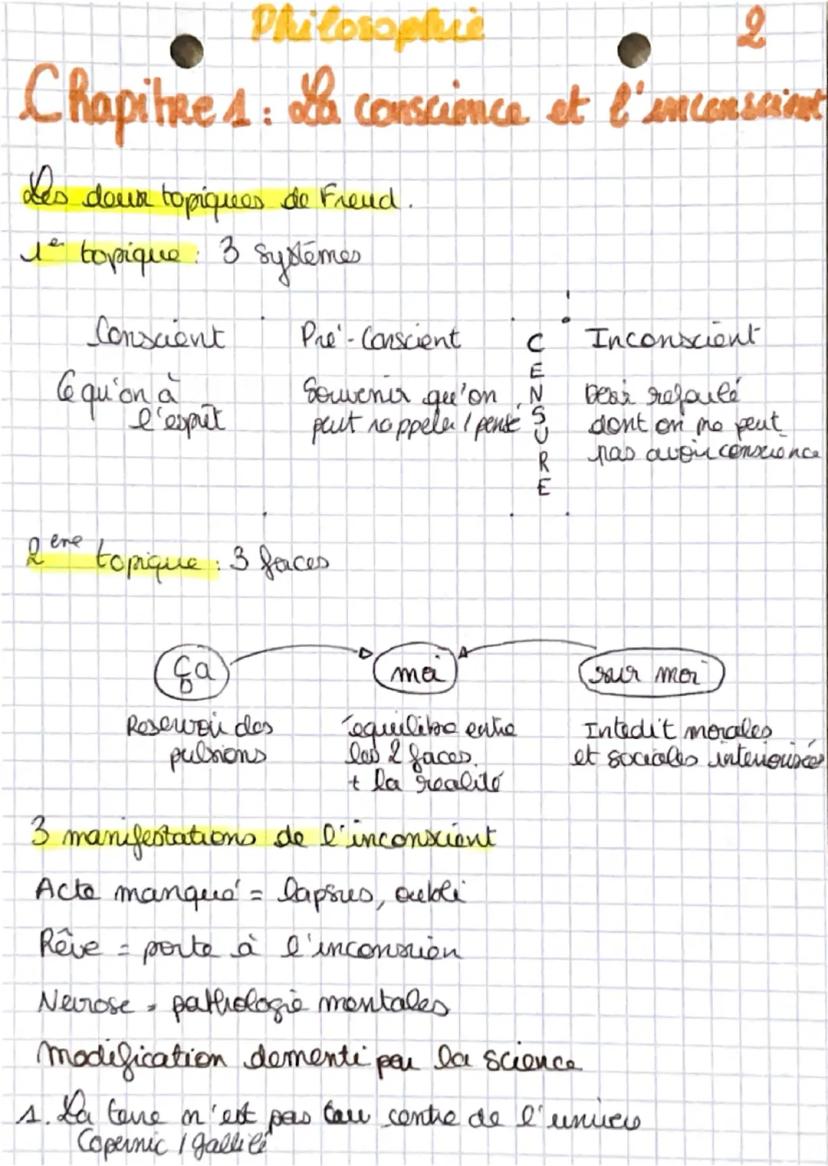 Philosophie 2
Chapitre 1 : La conscience et l'inconscient
Les deux topiques de Freud.
1e topique : 3 systèmes
Conscient Pré-Conscient CENSURE Inconscient
Ce qu'on à Souvenir qu'on Desir refoulé
l'esprit peut rappeler / pensé dont on ne peut
pas avoir conscience
2ère topique : 3 faces
Ça moi sur moi
Reservoir des équilibre entre Intedit morales
pulsions les 2 faces. et sociales interiorisées
+ la realité
3 manifestations de l'inconscient
Acte manqué = lapsus, oubli
Rêve = porte à l'inconscien
Nevrose = pathologie mentales
Modification dementi par la science
1. La terre n'est pas au centre de l'univers
Copernic / Gallilé